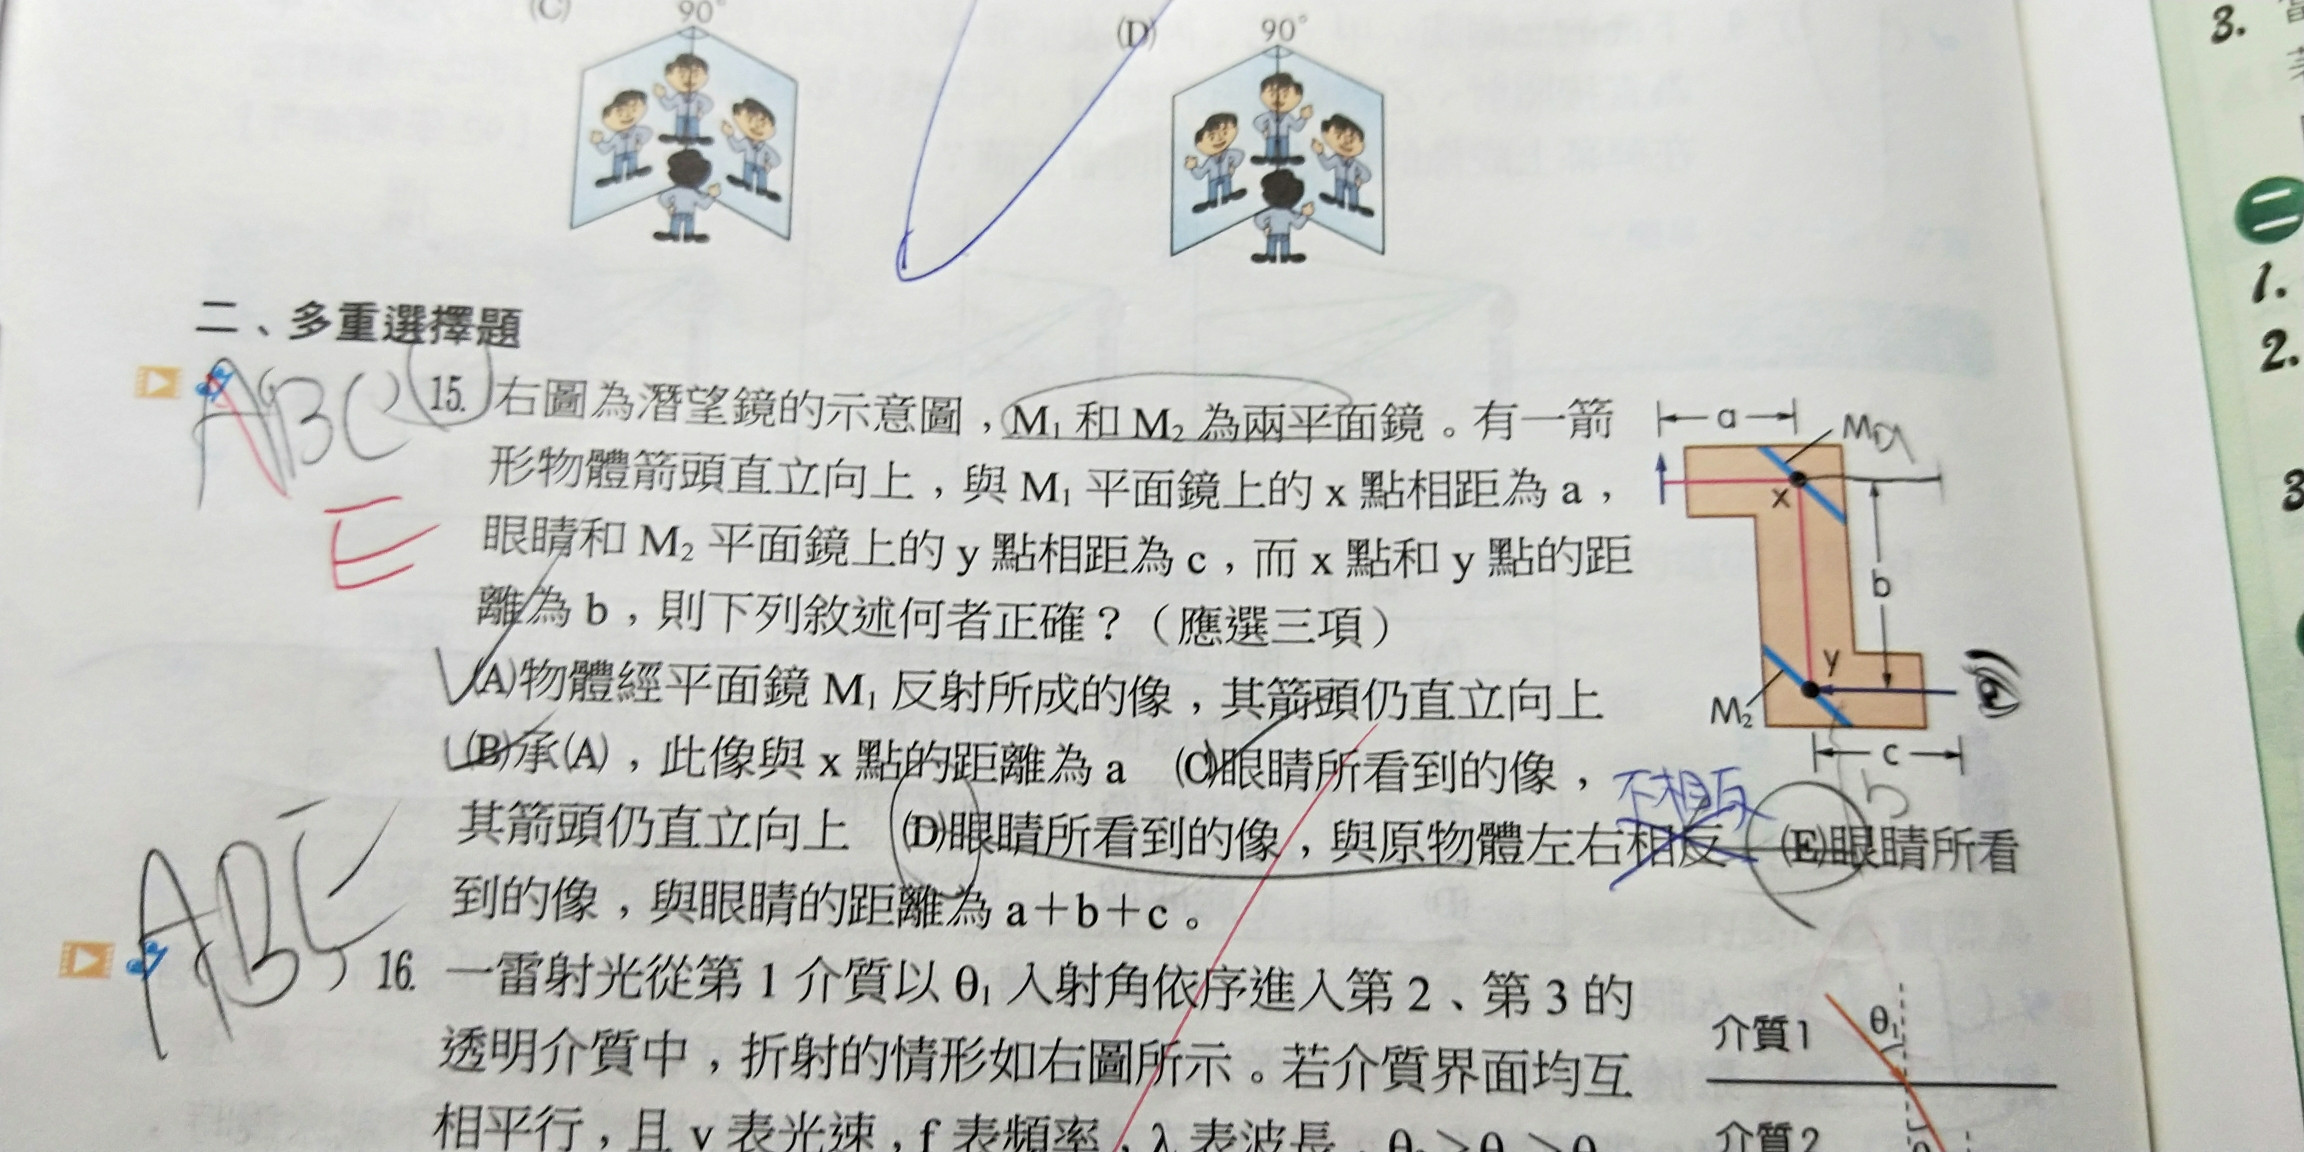 (C)
90°
(D)
90°
二、多重選擇題
ABC
E
15. 右圖為潛望鏡的示意圖，M₁ 和 M₂ 為兩平面鏡。有一箭
形物體箭頭直立向上，與 M₁ 平面鏡上的 x 點相距為 a，
眼睛和 M₂ 平面鏡上的 y 點相距為 c，而 x 點和 y 點的距
離為 b，則下列敘述何者正確？（應選三項）
(A)物體經平面鏡 M₁ 反射所成的像，其箭頭仍直立向上
(B)承(A)，此像與 x 點的距離為 a　(C)眼睛所看到的像，
其箭頭仍直立向上　(D)眼睛所看到的像，與原物體左右相反　(E)眼睛所看
到的像，與眼睛的距離為 a＋b＋c。
不相反
a
x
b
y
M₂
c
b
ABE
16. 一雷射光從第 1 介質以 θ₁ 入射角依序進入第 2、第 3 的
透明介質中，折射的情形如右圖所示。若介質界面均互
相平行，且 v 表光速，f 表頻率，λ 表波長，
介質1
θ₁
介質2
3.
二
1.
2.
3